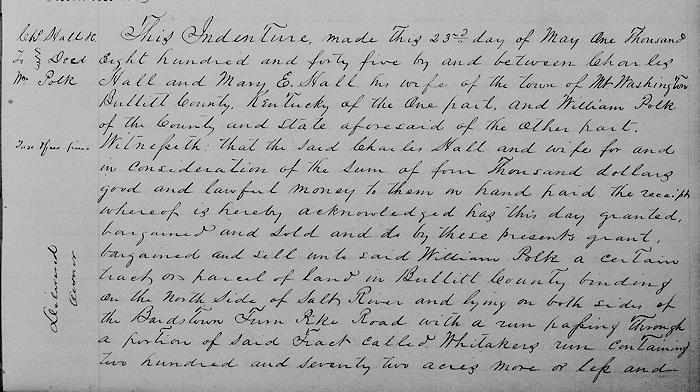 Chs Hall &c
To Deed
Wm Polk
This Indenture, made this 23rd day of May One Thousand
Eight hundred and forty five by and between Charles
Hall and Mary E. Hall his wife of the town of Mt Washington
Bullitt County, Kentucky of the One part, and William Polk
of the County and State aforesaid of the Other part.
Witnesseth: that the said Charles Hall and wife for and
in consideration of the sum of four Thousand dollars
good and lawful money to them in hand paid the receipt
whereof is hereby acknowledged has this day granted,
bargained and sold and do by these presents grant,
bargained and sell unto said William Polk a certain
tract or parcel of land in Bullitt County binding
on the North Side of Salt River and lying on both sides of
the Bardstown Turn Pike Road with a run passing through
a portion of said Tract called Whitakers run containing
two hundred and seventy two acres more or less and
Delivered